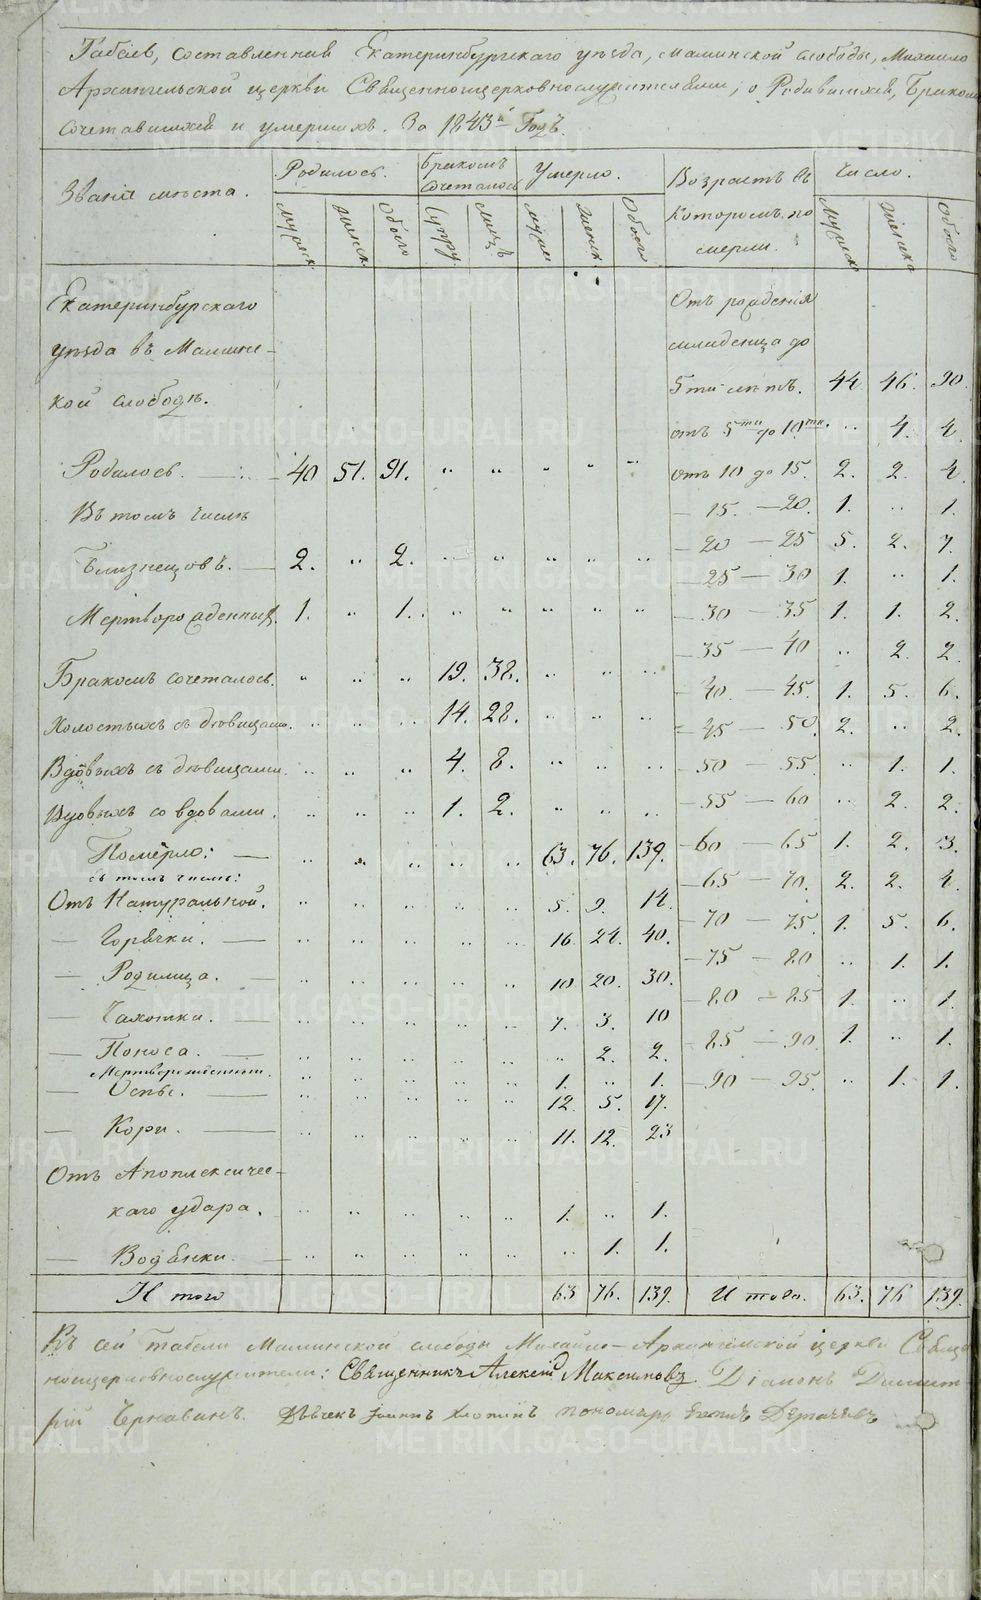 Табель, составленная Екатеринбургскаго уезда, Маминской слободы, Михаило
Архангельской церкви Священноцерковнослужителями, о Родившихся, Браком
сочетавшихся и умершихъ. За 1843й Годъ.
Званiя места. Родилось. Бракомъ сочеталось Умерло. Возрастъ въ которомъ по смерли. Число.
Мужеск Женск. Обоего Супру. Лицъ Муже Женск. Обоего Мужеск Женска Обоего
Екатеринбурскаго Отъ рожденiя
уезда въ Мамин- младенца до
ской слободе. 5ти летъ. 44. 46. 90.
отъ 5ти до 10ти. .. 4. 4.
Родилось. 40 51. 91. .. .. .. .. .. отъ 10 до 15. 2. 2. 4.
Въ томъ числе — 15. — 20. 1. .. 1.
Близнецовъ. — 2. .. 2. .. .. .. .. .. — 20 — 25 5. 2. 7.
— 25 — 30 1. .. 1.
Мертворожденныхъ. 1. .. 1. .. .. .. .. .. — 30 — 35 1. 1. 2.
— 35 — 40 .. 2. 2.
Бракомъ сочеталось. .. .. .. 19. 38. .. .. .. — 40. — 45. 1. 5. 6.
Холостыхъ съ девицами. .. .. .. 14. 28. .. .. .. — 45 — 50. 2. .. 2.
Вдовыхъ съ девицами. .. .. .. 4. 8. .. .. .. — 50 — 55. .. 1. 1.
Вдовыхъ со вдовами. .. .. .. 1. 2. .. .. .. — 55 — 60 .. 2. 2.
Померло: — .. .. .. .. .. 63. 76. 139. — 60 — 65 1. 2. 3.
въ томъ числе:
— 65 — 70. 2. 2. 4.
Отъ Натуральной. .. .. .. .. .. 5. 9. 14. — 70 — 75. 1. 5. 6.
— Горячки. — .. .. .. .. .. 16. 24. 40. — 75 — 80 .. 1. 1.
— Родимца. — .. .. .. .. .. 10 20. 30. — 80 — 85 1. .. 1.
— Чахотки. — .. .. .. .. .. 7. 3. 10 — 85 — 90. 1. .. 1.
— Поноса. — .. .. .. .. .. .. 2. 2. — 90 — 95. .. 1. 1.
Мертворожденный. .. .. .. .. .. 1. .. 1.
— Оспы. — .. .. .. .. .. 12. 5. 17.
— Кори. — .. .. .. .. .. 11. 12. 23
Отъ Апоплексичес-
каго удара. .. .. .. .. .. 1. .. 1.
— Водянки. — .. .. .. .. .. .. 1. 1.
Итого 63 76. 139. Итого. 63. 76 139.
Въ сей табели Маминской слободы Михайло-Архангельской церкви Свяще
ноцерковнослужители: Священникъ Алексiй Максимовъ. Дiаконъ Димит-
рiй Чернавинъ. Дьячекъ Хлопинъ пономарь
METRIKI.GASO-URAL.RU